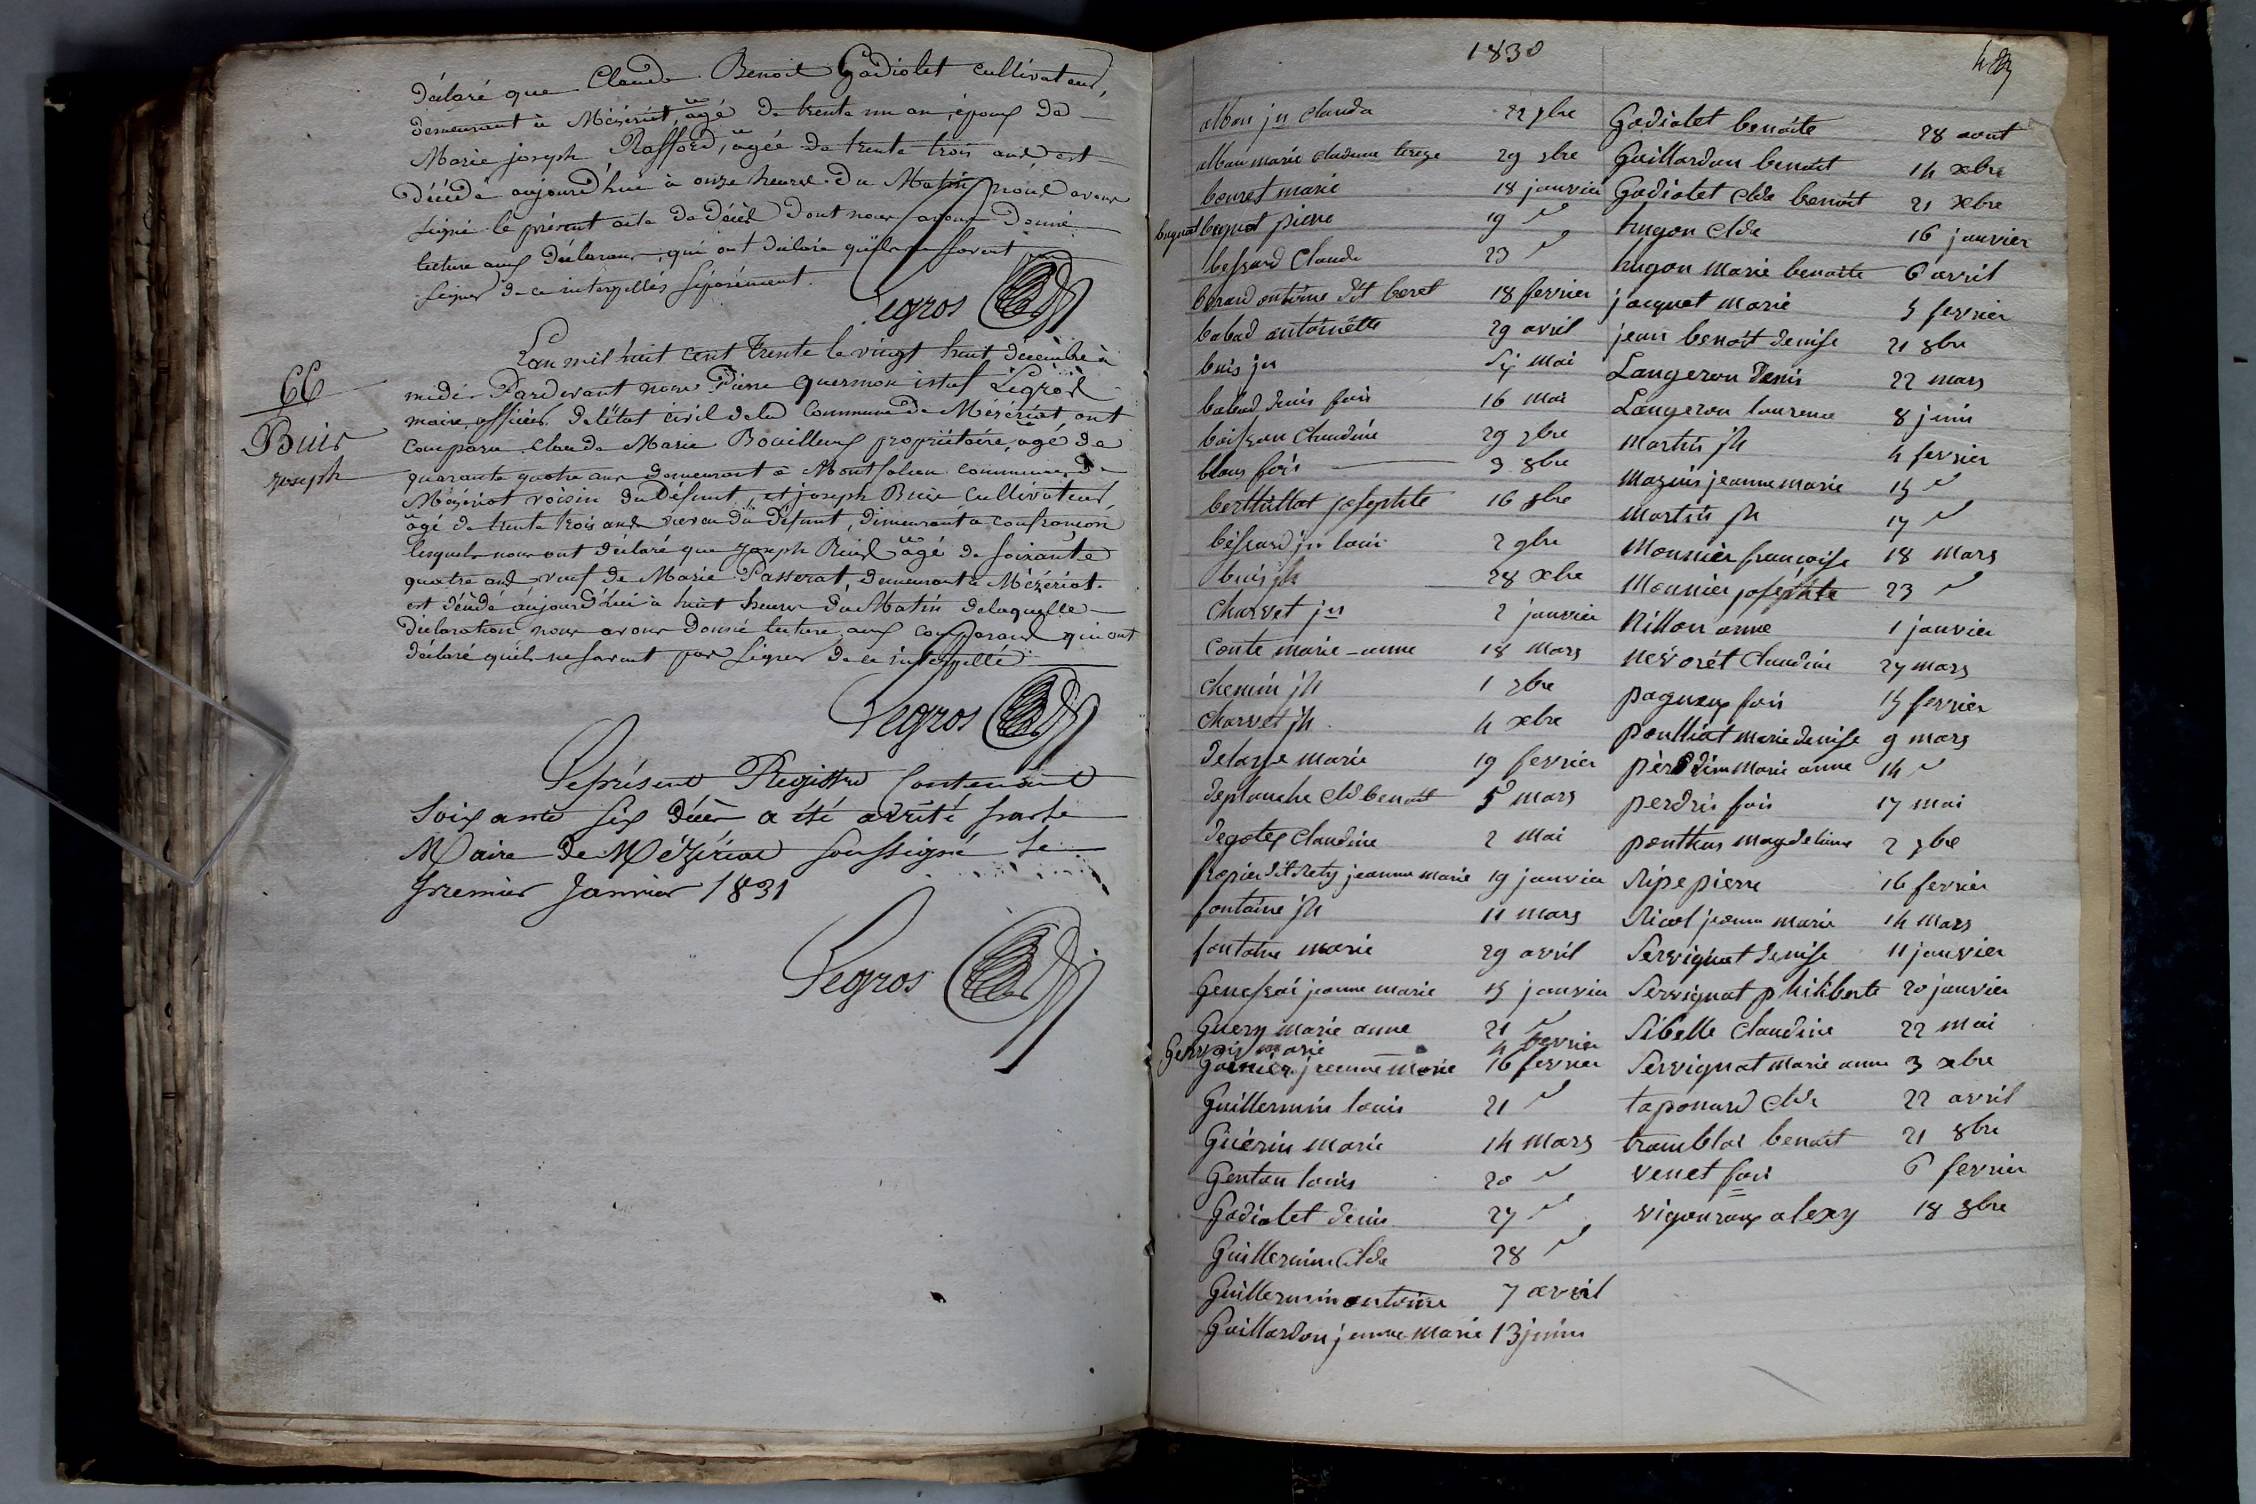 déclaré que Claude Benoit Gadiolet cultivateur,
demeurant à Mézériat, agé de trente un an, époux de
Marie joseph Rafford, agée de trente trois ans, est
décédé aujourd'hui à onze heures du Matin, nous avons
signé le présent acte de décès dont nous avons donné
lecture aux déclarans, qui ont déclaré qu'ils ne savent
signer de ce interpellés séparément.
Legros
66
Buis
joseph
L'an mil huit cent trente le vingt huit décembre à
midi Pardevant nous Pierre Legros
maire, officier de l'état civil de la Commune de Mézériat ont
comparu Claude Marie Bouilloux propriétaire, agé de
quarante quatre ans demeurant à Montfalcon commune de
Mézériat voisin du Défunt, et joseph Buis Cultivateur
agé de trente trois ans neveu du défunt, demeurant à confrançon
lesquels nous ont déclaré que joseph Buis agé de soixante
quatre ans veuf de Marie Passerat, demeurant à Mézériat
est décédé aujourd'hui à huit heures du Matin de laquelle
déclaration nous avons donné lecture aux comparans qui ont
déclaré qu'ils ne savent pas signer de ce interpellé
Legros
Le présent Registre Contenant
soixante six décès a été arrêté par le
Maire de Mézériat soussigné le
premier Janvier 1831
Legros
1830
alban jn claude 22 7bre
alban marie claudine tereze 29 7bre
bouret marie 18 janvier
bugnat bugnot pierre 19 "
bessard Claude 23 "
berard antoine dit beret 18 fevrier
babad antoinette 29 avril
buis jn mai
babad denis fois 16 mai
boisson claudine 29 7bre
blanc fois 3 8bre
berthillot josephte 16 8bre
bessard jn louis 2 9bre
buis jh 28 xbre
charvet jn 2 janvier
conte marie-anne 18 mars
chemin jh 1 7bre
charvet jh 4 xbre
delorge marie 19 fevrier
deplanche cld benoit 5 mars
degotex claudine 2 mai
jeanne marie 19 janvier
fontaine jh 11 mars
fontaine marie 29 avril
jeanne marie 15 janvier
Guery marie anne 21 "
Gervais marie 4 fevrier
Garnier jeanne marie 16 fevrier
Guillermin louis 21 "
Guérin marie 14 mars
Genton louis 20 "
Gadiolet denis 27 "
Guillermin clde 28 "
Guillermin antoine 7 avril
Gaillardon jeanne marie 13 juin
Gadiolet benoite 28 aout
Gaillardon benoit 14 xbre
Gadiolet clde benoit 21 xbre
hugon clde 16 janvier
hugon marie benoite 6 avril
jacquet marie 5 fevrier
jean benoit denise 21 8bre
Langeron denis 22 mars
Langeron laurence 8 juin
martin jh 4 fevrier
mazuis jeanne marie 15 "
martin jh 17 "
monnier françoise 18 mars
monnier josephte 23 "
Nillon anne 1 janvier
nevoret claudine 27 mars
paquaux fois 15 fevrier
poulliat marie denise 9 mars
marie anne 14 "
perdrix fois 17 mai
ponthus magdeleine 2 7bre
Ripe pierre 16 fevrier
Nicol jeanne marie 14 mars
Servignat denise 11 janvier
Servignat philiberte 20 janvier
Sibelle claudine 22 mai
Servignat marie anne 3 xbre
taponard clde 22 avril
tremblai benoit 21 8bre
venet fois 6 fevrier
vigouroux alexy 18 8bre